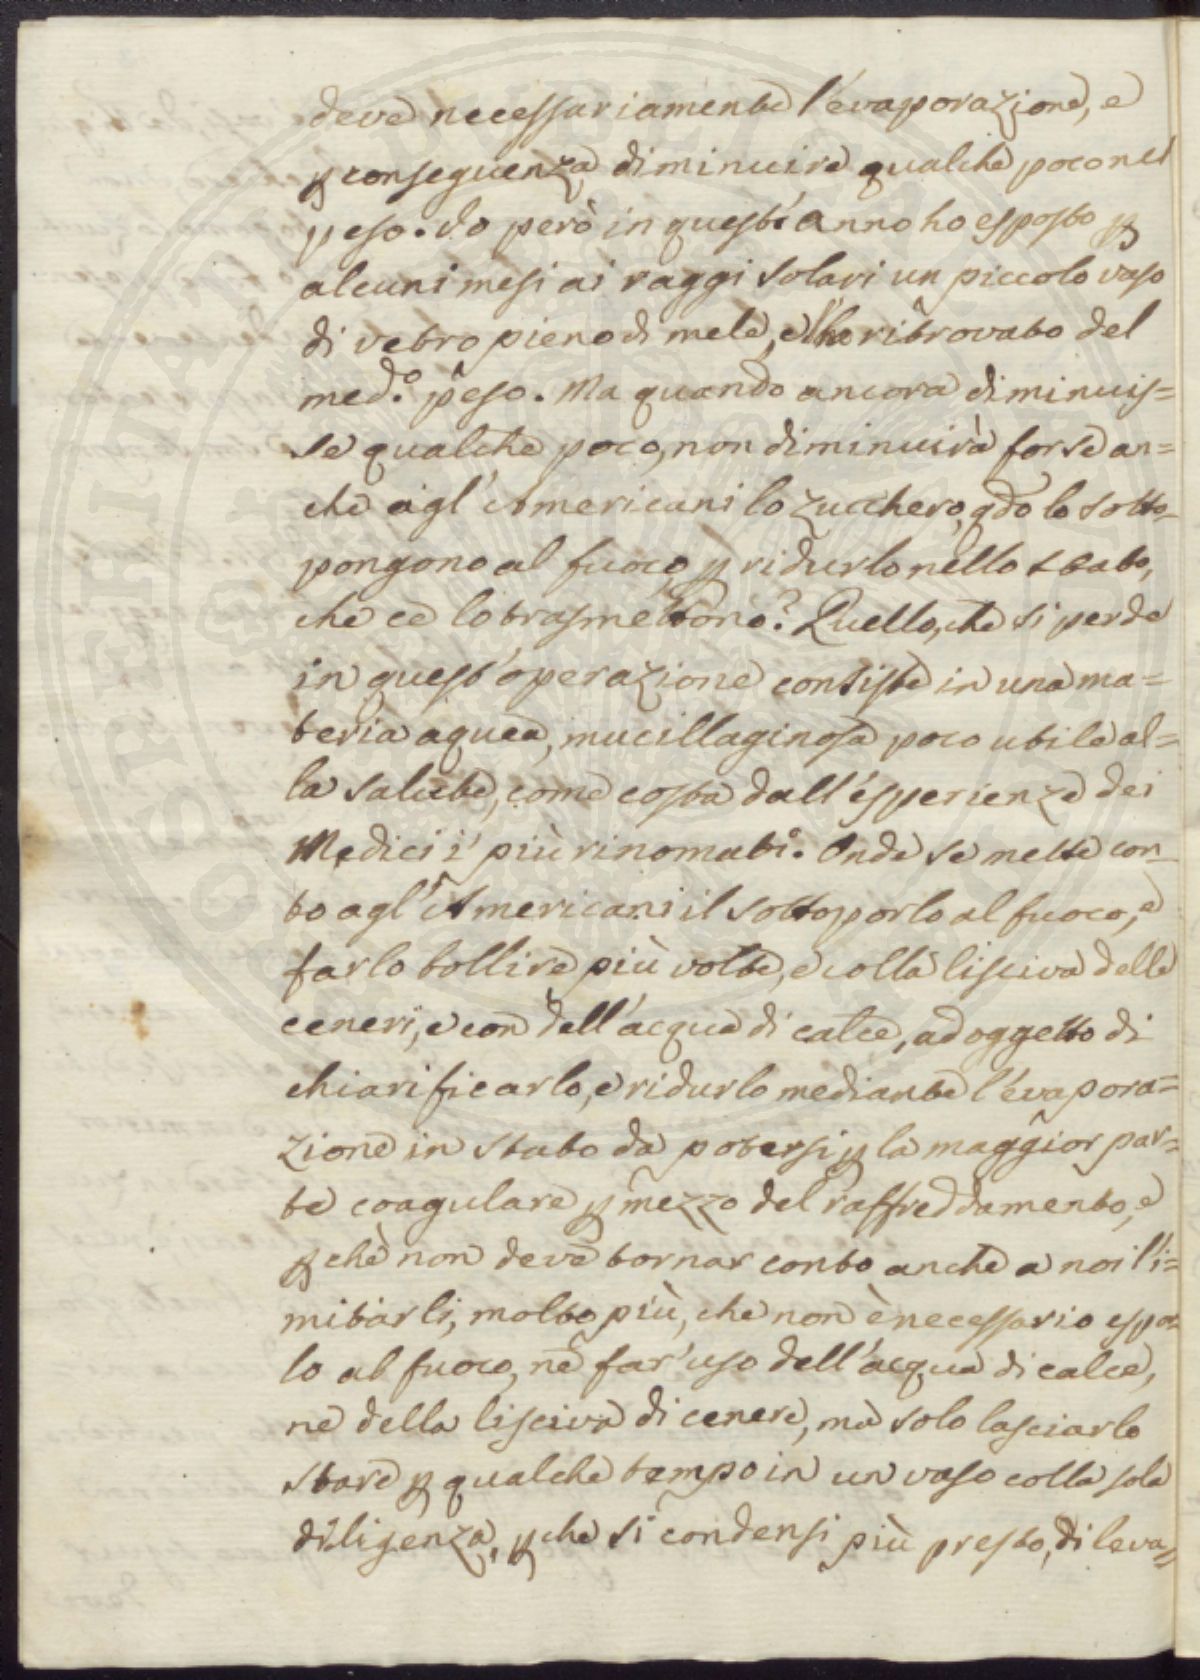 deve necessariamente l'evaporazione, e
ꝑ conseguenza diminuire qualche poco nel
peso. Io però in quest'anno ho esposto ꝑ
alcuni mesi ai raggi solari un piccolo vaso
di vetro pieno di mele, e l'ho ritrovato del
med.º peso. Ma quando ancora diminuis=
se qualche poco, non diminuirà forse an=
che agl'Americani lo zucchero, qdo lo sotto-
pongono al fuoco, ꝑ ridurlo nello stato,
che ce lo trasmettono? Quello, che si perde
in quest'operazione consiste in una ma=
teria aquea, mucillaginosa poco utile al=
la salute, come costa dall'esperienze dei
Medici i più rinomati. Onde se mette con-
to agl'Americani il sottoporlo al fuoco, e
farlo bollire più volte, e colla lisciva delle
ceneri, e con dell'acqua di calce, ad oggetto di
chiarificarlo, e ridurlo mediante l'evapora=
zione in stato da potersi ꝑ la maggior par=
te coagulare ꝑ mezzo del raffreddamento, e
ꝑchè non deve tornar conto anche a noi l'i=
mitarli, molto più, che non è necessario espor=
lo al fuoco, nè far'uso dell'acqua di calce,
nè della lisciva di cenere, ma solo lasciarlo
stare ꝑ qualche tempo in un vaso colla sola
diligenza, ꝑche si condensi più presto, di leva=
SOSPITATI PUBLICAE